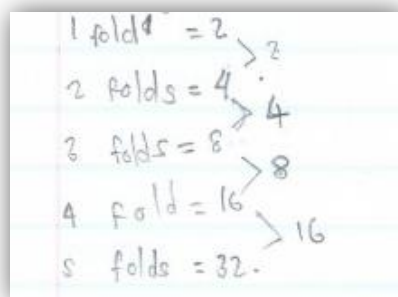 1 fold = 2
> 2
2 folds = 4
> 4
3 folds = 8
> 8
4 fold = 16
> 16
5 folds = 32.